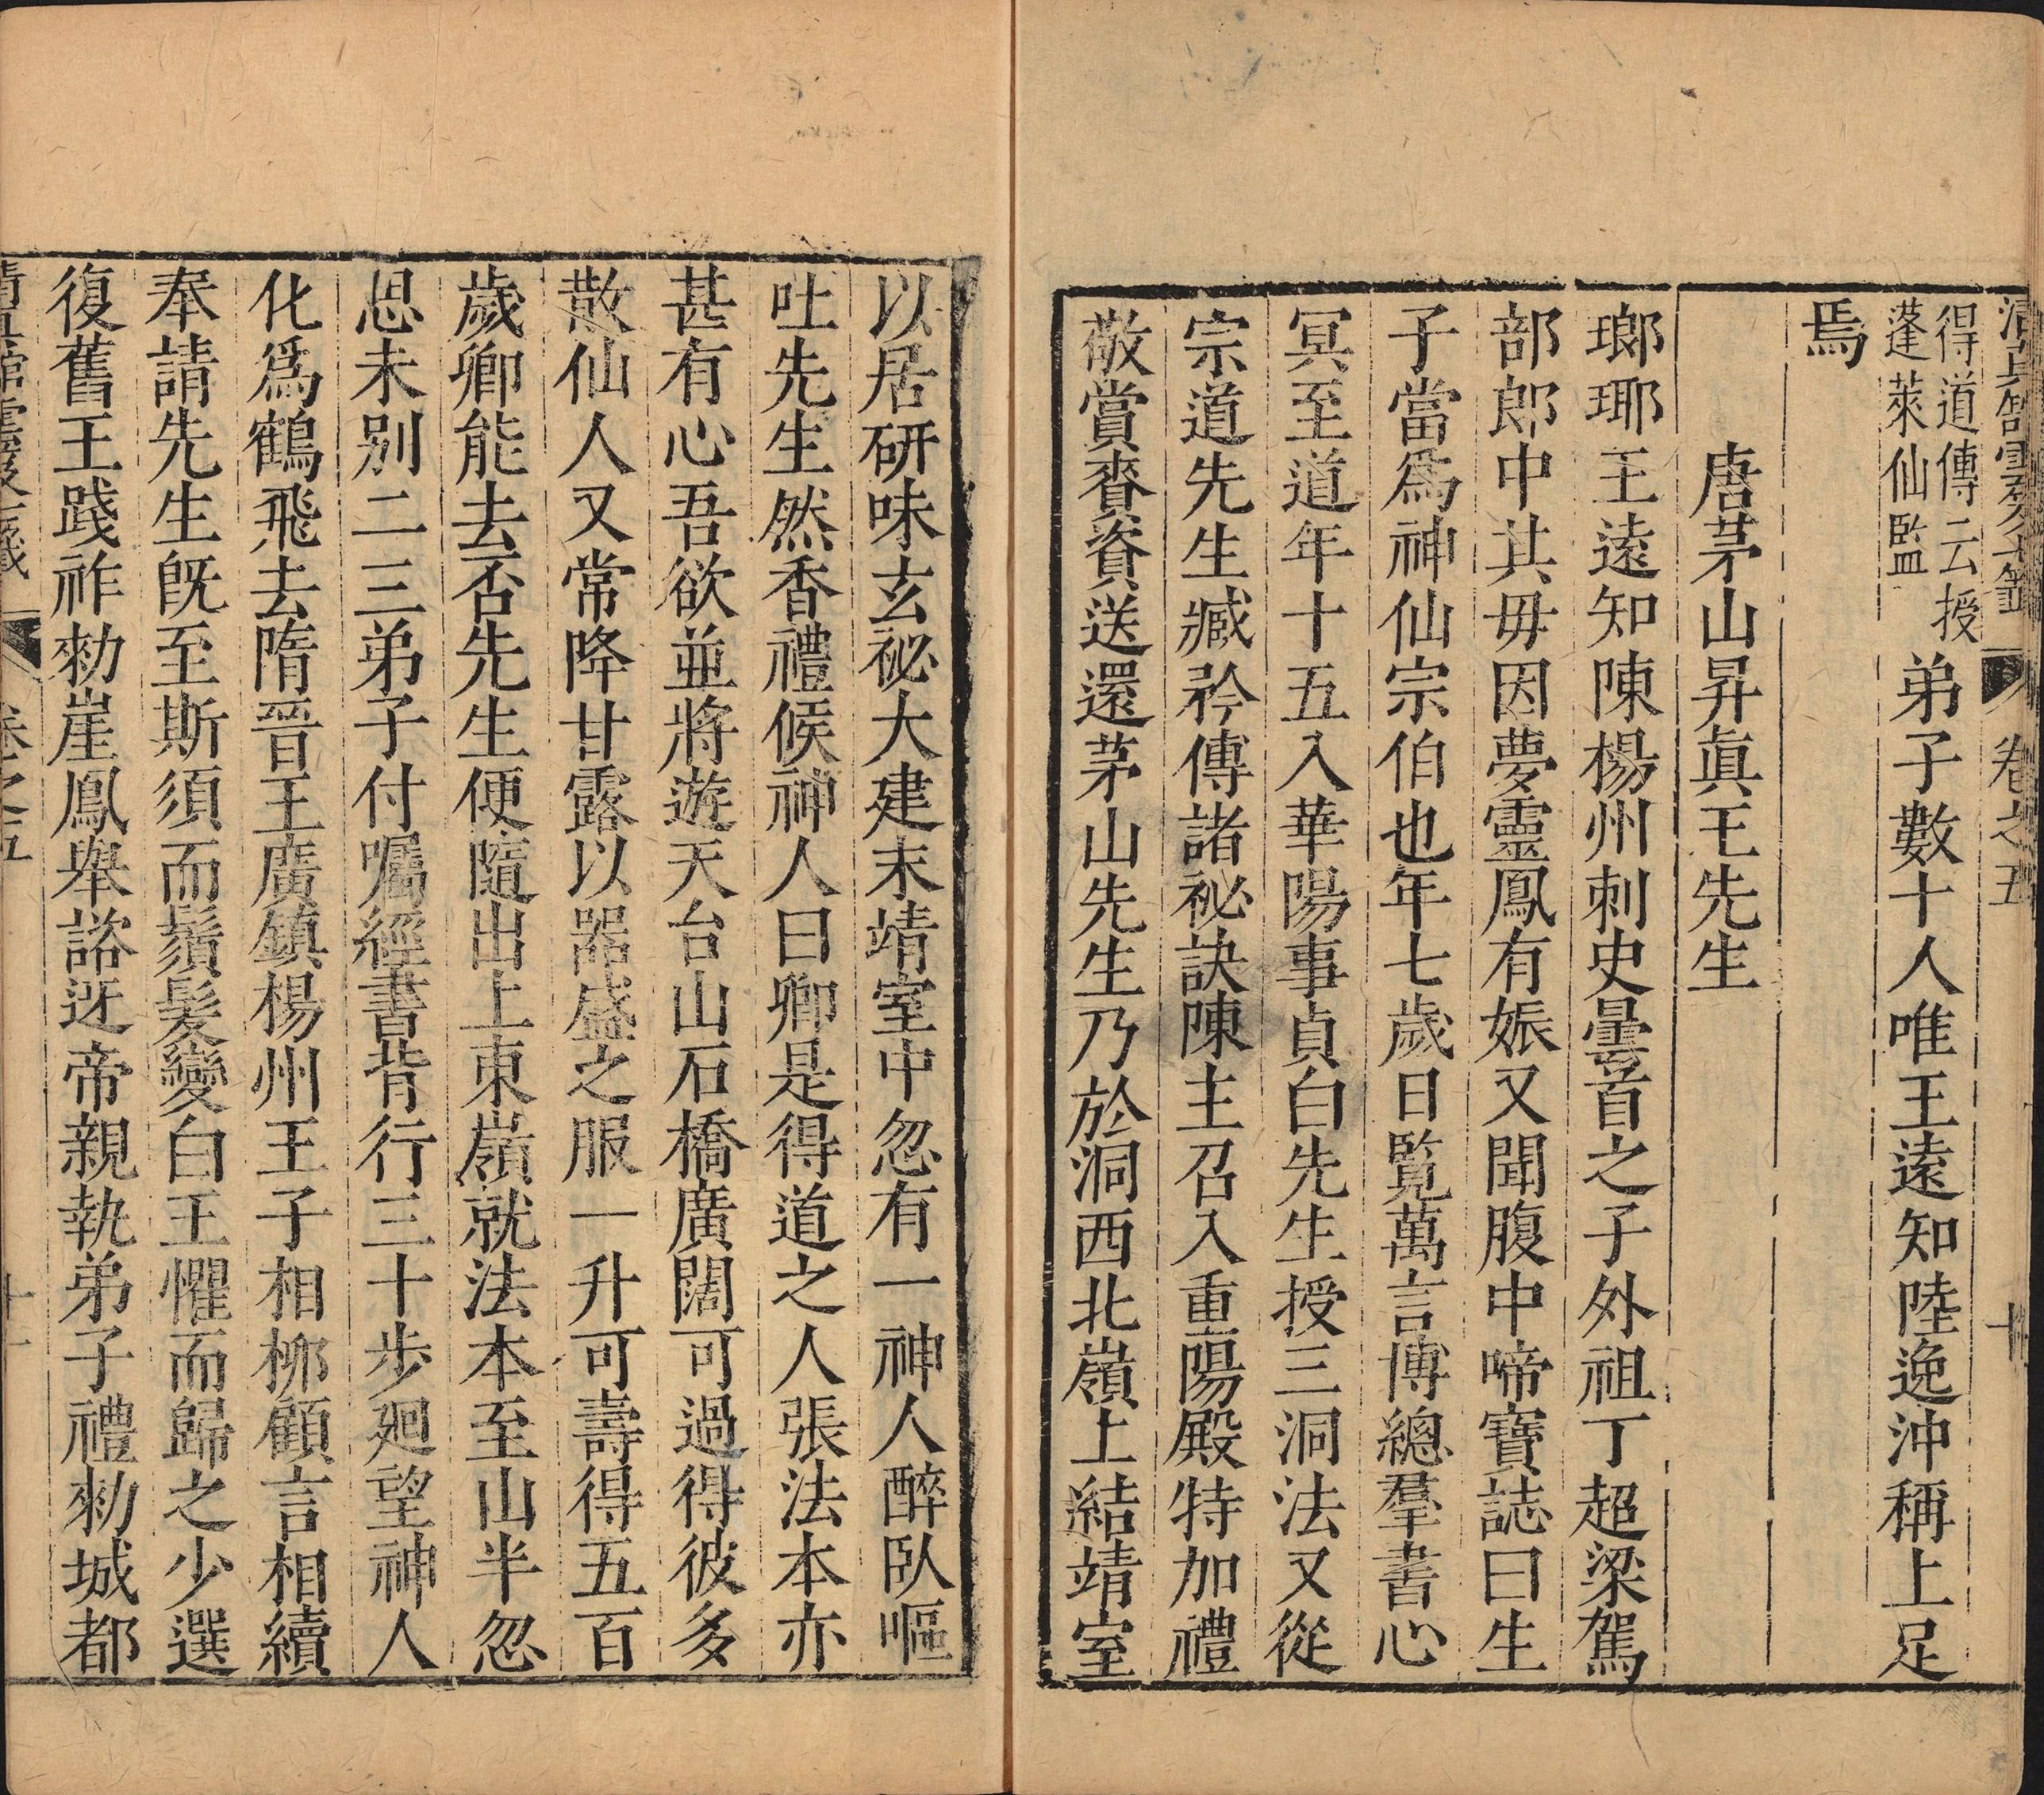 清真館雲笈七籤 卷之五 十
得道傳云授蓬萊仙監弟子數十人唯王遠知陸逸沖稱上足
焉
唐茅山昇眞王先生
瑯琊王遠知陳楊州刺史曇首之子外祖丁超梁駕
部郎中其毋因夢靈鳳有娠又聞腹中啼寶誌曰生
子當爲神仙宗伯也年七歲日覽萬言博總羣書心
冥至道年十五入華陽事貞白先生授三洞法又從
宗道先生臧矜傳諸祕訣陳主召入重陽殿特加禮
敬賞賚資送還茅山先生乃於洞西北嶺上結靖室
以居研味玄祕大建末靖室中忽有一神人醉臥嘔
吐先生然香禮候神人曰卿是得道之人張法本亦
甚有心吾欲並將遊天台山石橋廣闊可過得彼多
散仙人又常降甘露以器盛之服一升可壽得五百
歲卿能去否先生便隨出上東嶺就法本至山半忽
思未别二三弟子付囑經書背行三十步廻望神人
化爲鶴飛去隋晉王廣鎮楊州王子相柳顧言相續
奉請先生旣至斯須而鬚髮變白王懼而歸之少選
復舊王踐祚勑崖鳳舉諮迓帝親執弟子禮勑城都
清真館雲笈七籤 卷之五 十一